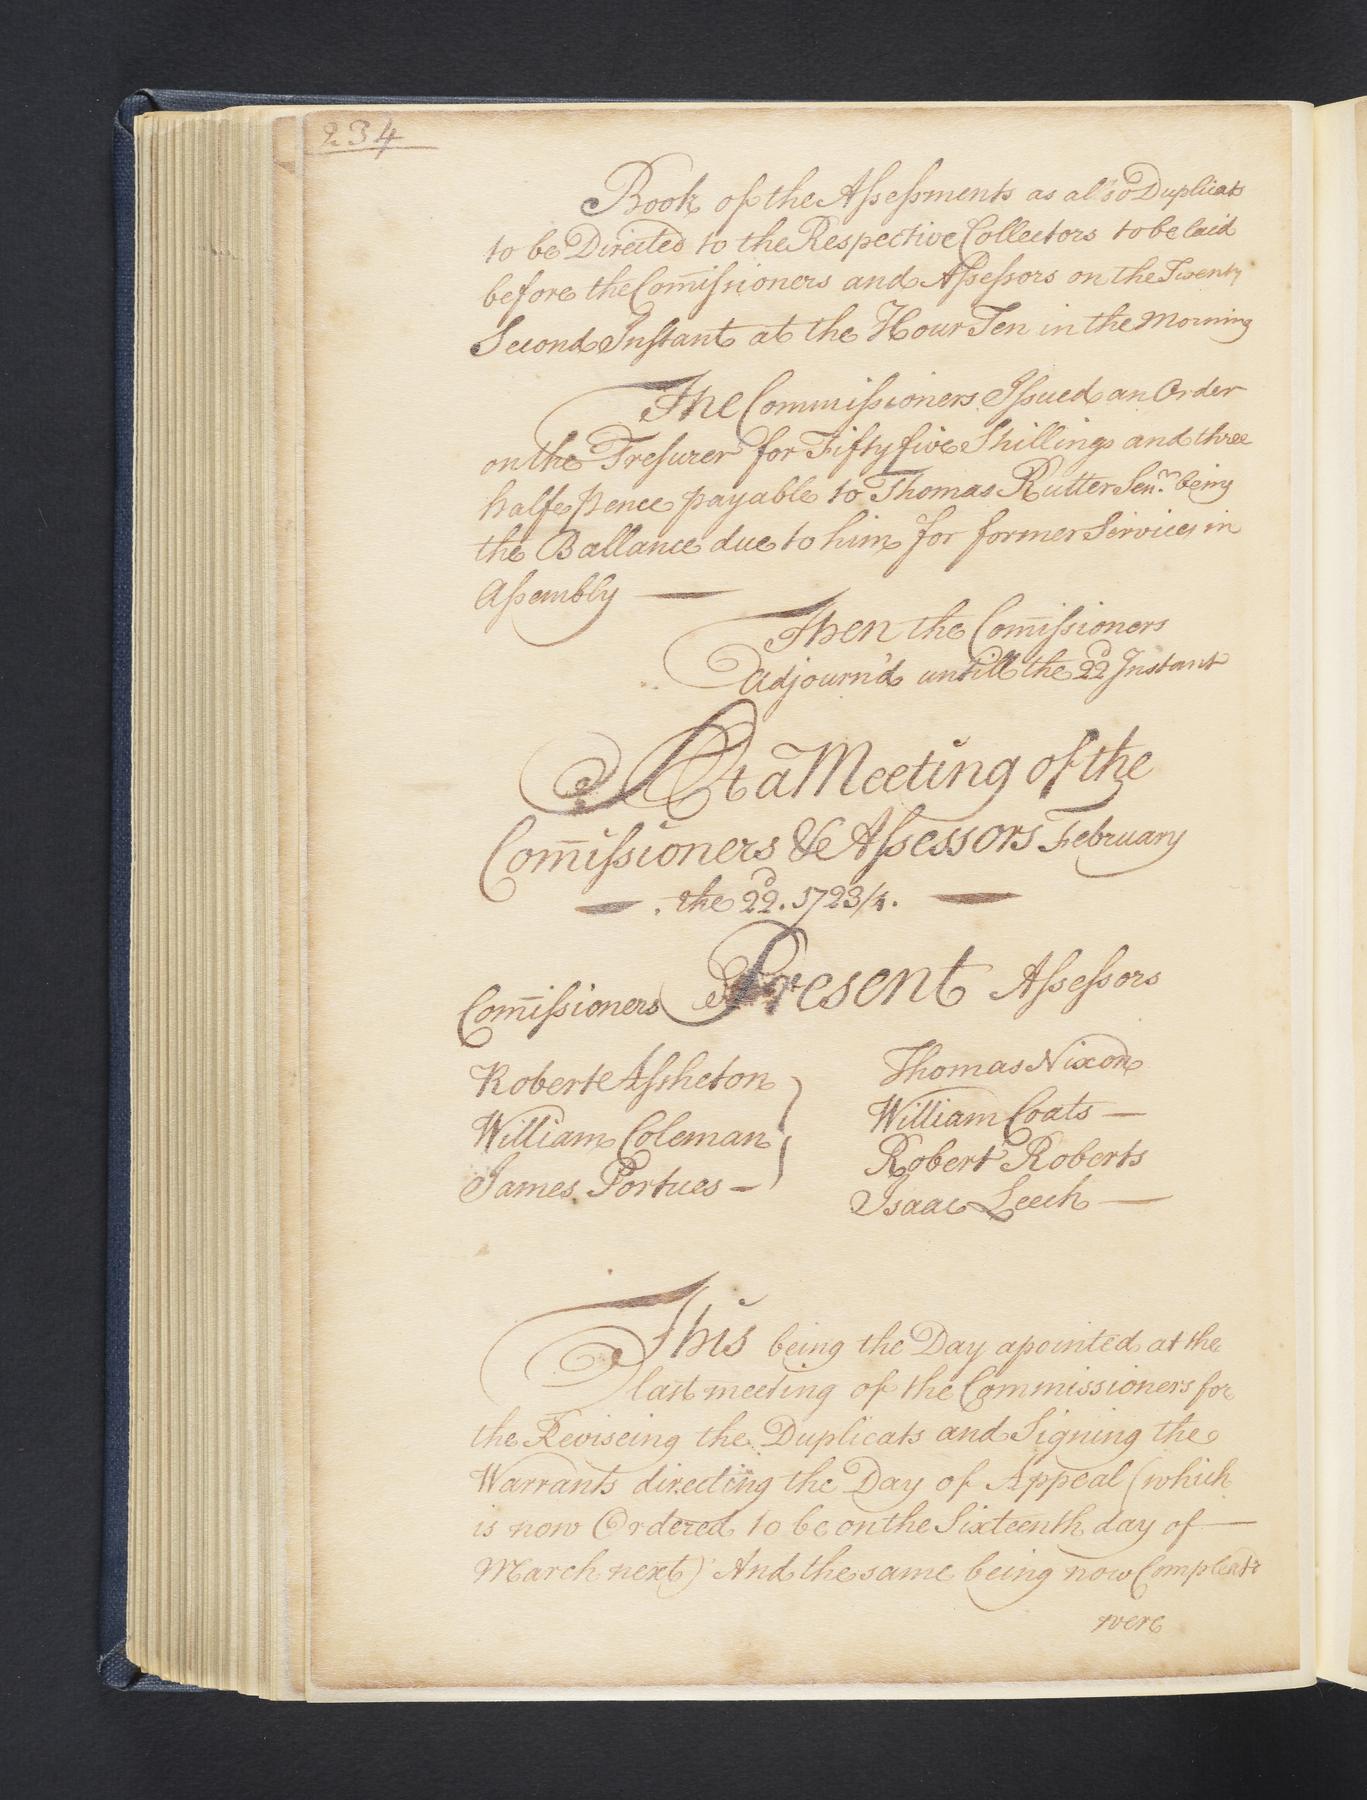 234
Book of the Assessments as also Duplicats
to be Directed to the Respective Collectors to be laid
before the Com̄issioners and Assessors on the Twenty
Second Instant at the Hour Ten in the Morning
The Commissioners Issued an Order
on the Tresurer for Fifty five Shillings and three
halfe pence payable to Thomas Rutter Senr. being
the Ballance due to him for former Services in
Assembly —
Then the Com̄issioners
Adjourn'd untill the 22d Instant
At a Meeting of the
Com̄issioners & Assessors February
— . the 22d. 1723/4. —
Com̄issioners Present Assessors
Robert Assheton Thomas Nixon
William Coleman William Coats —
James Portues — Robert Roberts
Isaac Leech —
This being the Day apointed at the
last meeting of the Commissioners for
the Reviseing the Duplicats and Signing the
Warrants directing the Day of Appeal (which
is now Ordered to be on the Sixteenth day of —
March next) And the same being now Compleat
were